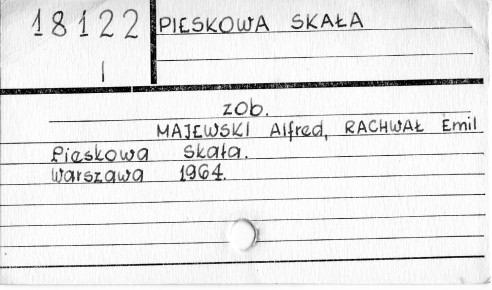 18122 PIESKOWA SKAŁA
I
zob.
MAJEWSKI Alfred, RACHWAŁ Emil
Pieskowa Skała.
Warszawa 1964.